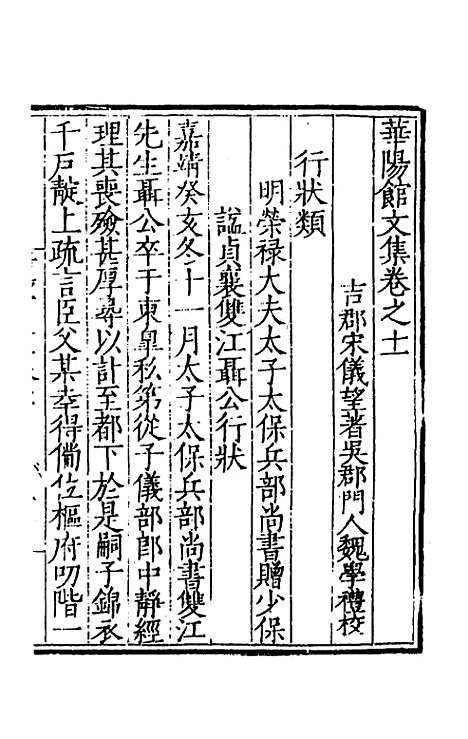 華陽館文集卷之十一
吉郡宋儀望著吳郡門人魏學禮校
行狀類
明榮禄大夫太子太保兵部尚書贈少保
諡貞襄雙江聶公行狀
嘉靖癸亥冬十一月太子太保兵部尚書雙江
先生聶公卒于東臯私第從子儀部郎中靜經
理其喪殮甚厚尋以訃至都下於是嗣子錦衣
千戶靛上疏言臣父某幸得備位樞府叨階一